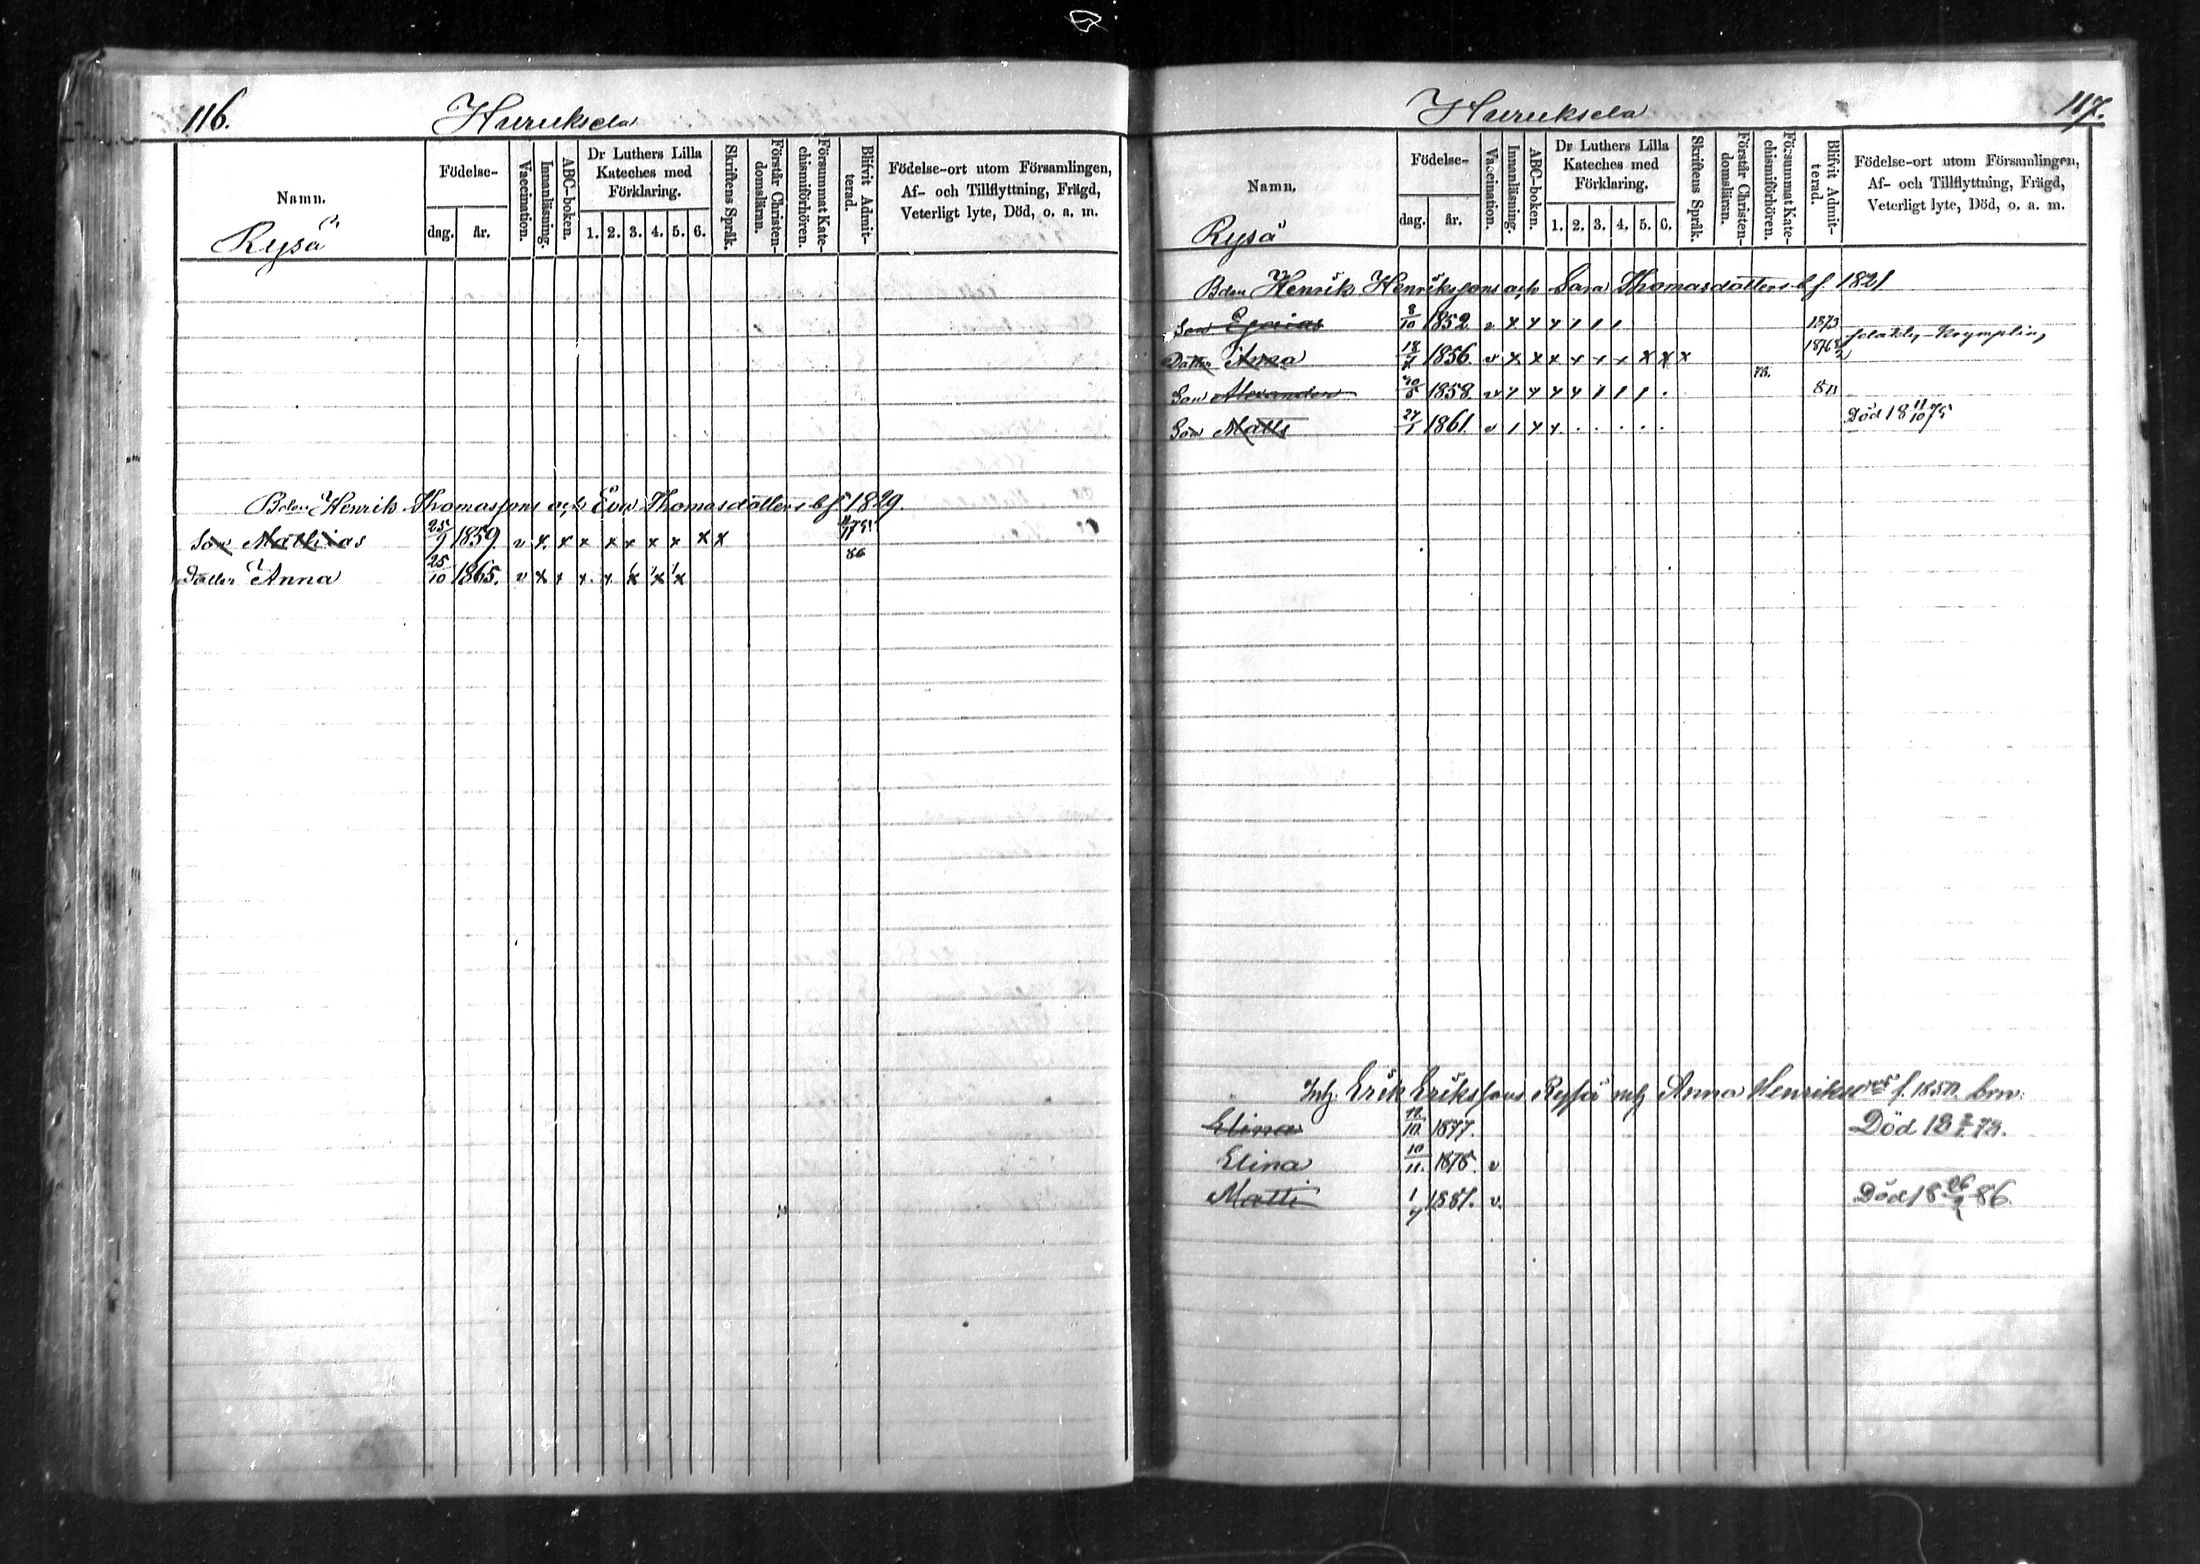 116.
Hairuksela
Namn.
Födelse-
dag.
år.
Vaccination.
Innanläsning.
ABC-boken.
Dr Luthers Lilla
Kateches med
Förklaring.
1. 2. 3. 4. 5. 6.
Skriftens Språk.
Förstår Christen-
domsläran.
Försummat Kate-
chismiförhören.
Blifvit Admit-
terad.
Födelse-ort utom Församlingen,
Af- och Tillflyttning, Frägd,
Veterligt lyte, Död, o. a. m.
Rysä
Bden Henrik Thomassons och Eva Thomasdotters b f. 1829.
Son Mathias 25/9 1859. v x x x x x x x x x
Dotter Anna 25/10 1865. v x x x x x x x 86
117.
Hairuksela
Namn.
Födelse-
dag.
år.
Vaccination.
Innanläsning.
ABC-boken.
Dr Luthers Lilla
Kateches med
Förklaring.
1. 2. 3. 4. 5. 6.
Skriftens Språk.
Förstår Christen-
domsläran.
Försummat Kate-
chismiförhören.
Blifvit Admit-
terad.
Födelse-ort utom Församlingen,
Af- och Tillflyttning, Frägd,
Veterligt lyte, Död, o. a. m.
Rysä
Bden Henrik Henrikssons och Sara Thomasdotters b f. 1821
Son Esaias 8/10 1852 v x x x 1 1 1 1873
Dotter Anna 18/7 1856. v x x x x x x x x x 1876
Son Alexander 20/5 1858. v x x x x 1 1 1 . 78. 80
Son Matts 27/1 1861. v 1 x x . . . . . Död 18 11/10 75
Inh. Erik Erikssons Ryssä och Anna Henriksd f. 1850. brn:
Elina 11/10. 1877. Död 18 7 78.
Elina 10/11. 1878. v
Matti 1/7 1881. v. Död 18 26 86.